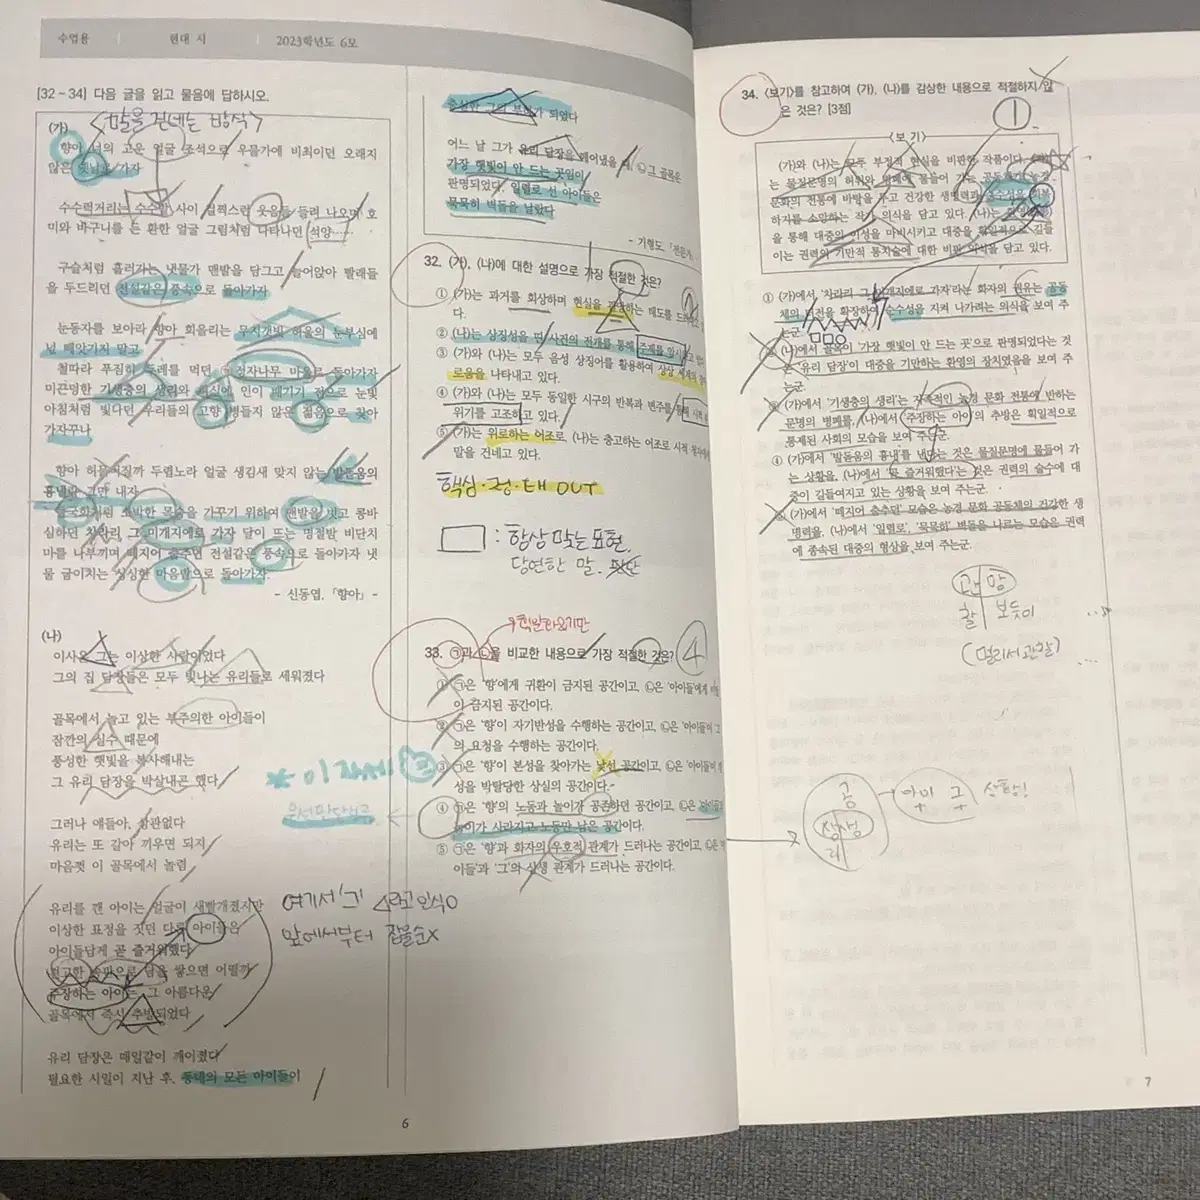 수업용 | 현대 시 | 2023학년도 6모
[32~34] 다음 글을 읽고 물음에 답하시오.
(가) <말을 건네는 방식>
향아 너의 고운 얼굴 조석으로 우물가에 비최이던 오래지
않은 옛날로 가자
수수럭거리는 수수밭 사이 걸찍스런 웃음들 들려 나오며 호
미와 바구니를 든 환한 얼굴 그림처럼 나타나던 석양……
구슬처럼 흘러가는 냇물가 맨발을 담그고 늘어앉아 빨래들
을 두드리던 전설같은 풍속으로 돌아가자
눈동자를 보아라 향아 회올리는 무지갯빛 허울의 눈부심에
넋 빼앗기지 말고
철따라 푸짐히 두레를 먹던 ㉠정자나무 마을로 돌아가자
미끈덩한 기생충의 생리와 허식에 인이 배기기 전으로 눈빛
아침처럼 빛나던 우리들의 고향 병들지 않은 젊음으로 찾아
가자꾸나
향아 허물어질까 두렵노라 얼굴 생김새 맞지 않는 발돋움의
흉낼랑 그만 내자
들국화처럼 소박한 목숨을 가꾸기 위하여 맨발을 벗고 콩바
심하던 차라리 그 미개지에로 가자 달이 뜨는 명절밤 비단치
마를 나부끼며 떼지어 춤추던 전설같은 풍속으로 돌아가자 냇
물 굽이치는 싱싱한 마음밭으로 돌아가자.
- 신동엽, 「향아」 -
(나)
이사온 그는 이상한 사람이었다
그의 집 담장들은 모두 빛나는 유리들로 세워졌다
골목에서 놀고 있는 부주의한 아이들이
잠깐의 실수 때문에
풍성한 햇빛을 복사해내는
그 유리 담장을 박살내곤 했다
그러나 얘들아, 상관없다
유리는 또 갈아 끼우면 되지
마음껏 이 골목에서 놀렴
유리를 깬 아이는 얼굴이 새빨개졌지만
이상한 표정을 짓던 다른 아이들은
아이들답게 곧 즐거워했다
견고한 송판으로 담을 쌓으면 어떨까
주장하는 아이는, 그 아름다운
골목에서 즉시 추방되었다
유리 담장은 매일같이 깨어졌다
필요한 시일이 지난 후, 동네의 모든 아이들이
충실한 그의 부하가 되었다
어느 날 그가 유리 담장을 떼어냈을 때, ㉡그 골목은
가장 햇빛이 안 드는 곳임이
판명되었다, 일렬로 선 아이들은
묵묵히 벽돌을 날랐다
- 기형도, 「전문가」 -
32. (가), (나)에 대한 설명으로 가장 적절한 것은?
① (가)는 과거를 회상하며 현실을 관망하는 태도를 드러내고 있
다.
② (나)는 상징성을 띤 사건의 전개를 통해 주제를 암시하고 있다.
③ (가)와 (나)는 모두 음성 상징어를 활용하여 상상 세계의
로움을 나타내고 있다.
④ (가)와 (나)는 모두 동일한 시구의 반복과 변주를 통해 시적
위기를 고조하고 있다.
⑤ (가)는 위로하는 어조로 (나)는 충고하는 어조로 시적
말을 건네고 있다.
핵심·정·태 OUT
: 항상 맞는 표현.
당연한 말.
33. ㉠과 ㉡을 비교한 내용으로 가장 적절한 것은? ④
① ㉠은 '향'에게 귀환이 금지된 공간이고, ㉡은 '아이들'에게
이 금지된 공간이다.
② ㉠은 '향'이 자기반성을 수행하는 공간이고, ㉡은 '아이들'이 '그'
의 요청을 수행하는 공간이다.
③ ㉠은 '향'이 본성을 찾아가는 낯선 공간이고, ㉡은 '아이들'이
성을 박탈당한 상실의 공간이다.
④ ㉠은 '향'의 노동과 놀이가 공존하던 공간이고, ㉡은 '아이들'의
놀이가 사라지고 노동만 남은 공간이다.
⑤ ㉠은 '향'과 화자의 우호적 관계가 드러나는 공간이고, ㉡은 '아
이들'과 '그'의 상생 관계가 드러나는 공간이다.
여기서 '그' △라고 인식O
앞에서부터 잡불순X
6
34. <보기>를 참고하여 (가), (나)를 감상한 내용으로 적절하지 않
은 것은? [3점] ①
<보 기>
(가)와 (나)는 모두 부정적 현실을 비판한 작품이다. (가)
는 물질문명의 허위와 병폐에 물들어 가는 공동체가 농경
문화의 전통에 바탕을 두고 건강한 생명력과 순수성을 회복
하기를 소망하는 작가 의식을 담고 있다. (나)는
을 통해 대중의 이성을 마비시키고 대중을 획일적으로 길들
이는 권력의 기만적 통치술에 대한 비판 의식을 담고 있다.
① (가)에서 '차라리 그 미개지에로 가자'라는 화자의 권유는 공동
체의 터전을 확장하여 순수성을 지켜 나가려는 의식을 보여 주
는군.
② (나)에서 골목이 '가장 햇빛이 안 드는 곳'으로 판명되었다는 것
은 '유리 담장'이 대중을 기만하는 환영의 장치였음을 보여 주
는군.
③ (가)에서 '기생충의 생리'는 자족적인 농경 문화 전통에 반하는
문명의 병폐를, (나)에서 '주장하는 아이'의 추방은 획일적으로
통제된 사회의 모습을 보여 주는군.
④ (가)에서 '발돋움의 흉내'를 낸다는 것은 물질문명에 물들어 가
는 상황을, (나)에서 '곧 즐거워했다'는 것은 권력의 술수에 대
중이 길들여지고 있는 상황을 보여 주는군.
⑤ (가)에서 '떼지어 춤추던' 모습은 농경 문화 공동체의 건강한 생
명력을, (나)에서 '일렬로', '묵묵히' 벽돌을 나르는 모습은 권력
에 종속된 대중의 형상을 보여 주는군.
관 망
찰 보듯이
(멀리서 관찰)
7